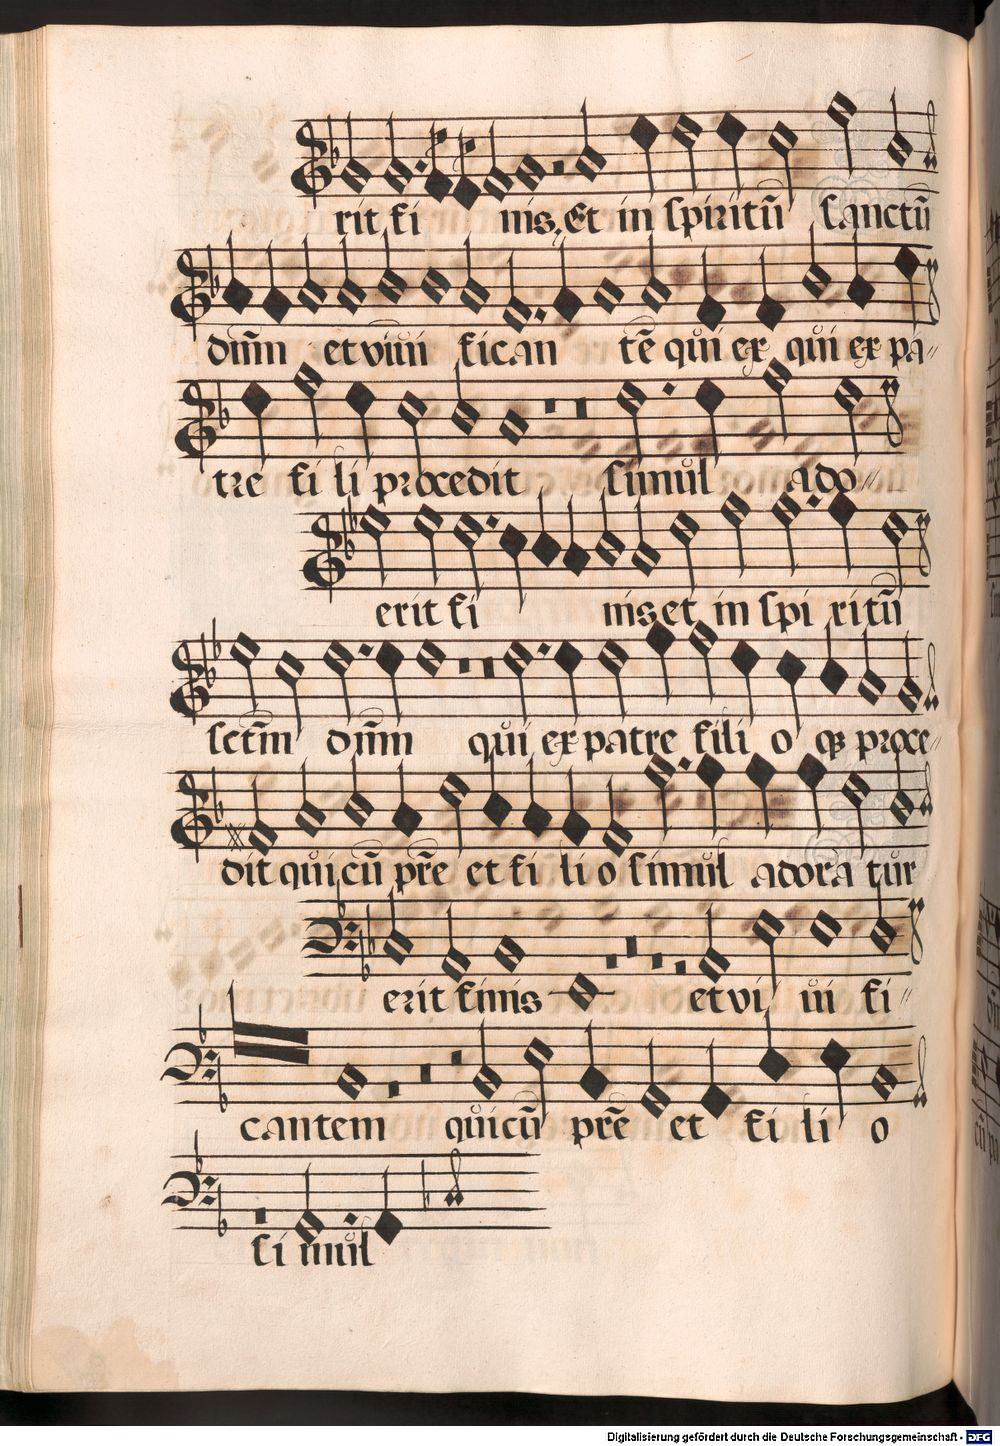 rit fi nis, Et in spiritū sanctū
dn̄m et viui fican tē qui ex qui ex pa
tre fi li procedit simul ado
erit fi nis et in spi ritū
sctm̄ dn̄m qui ex patre fili o qȝ proce
dit qui cū pr̄e et fi li o simul adora tur
erit finis et vi ui fi
cantem qui cū pr̄e et fi li o
si mul
Digitalisierung gefördert durch die Deutsche Forschungsgemeinschaft - DFG